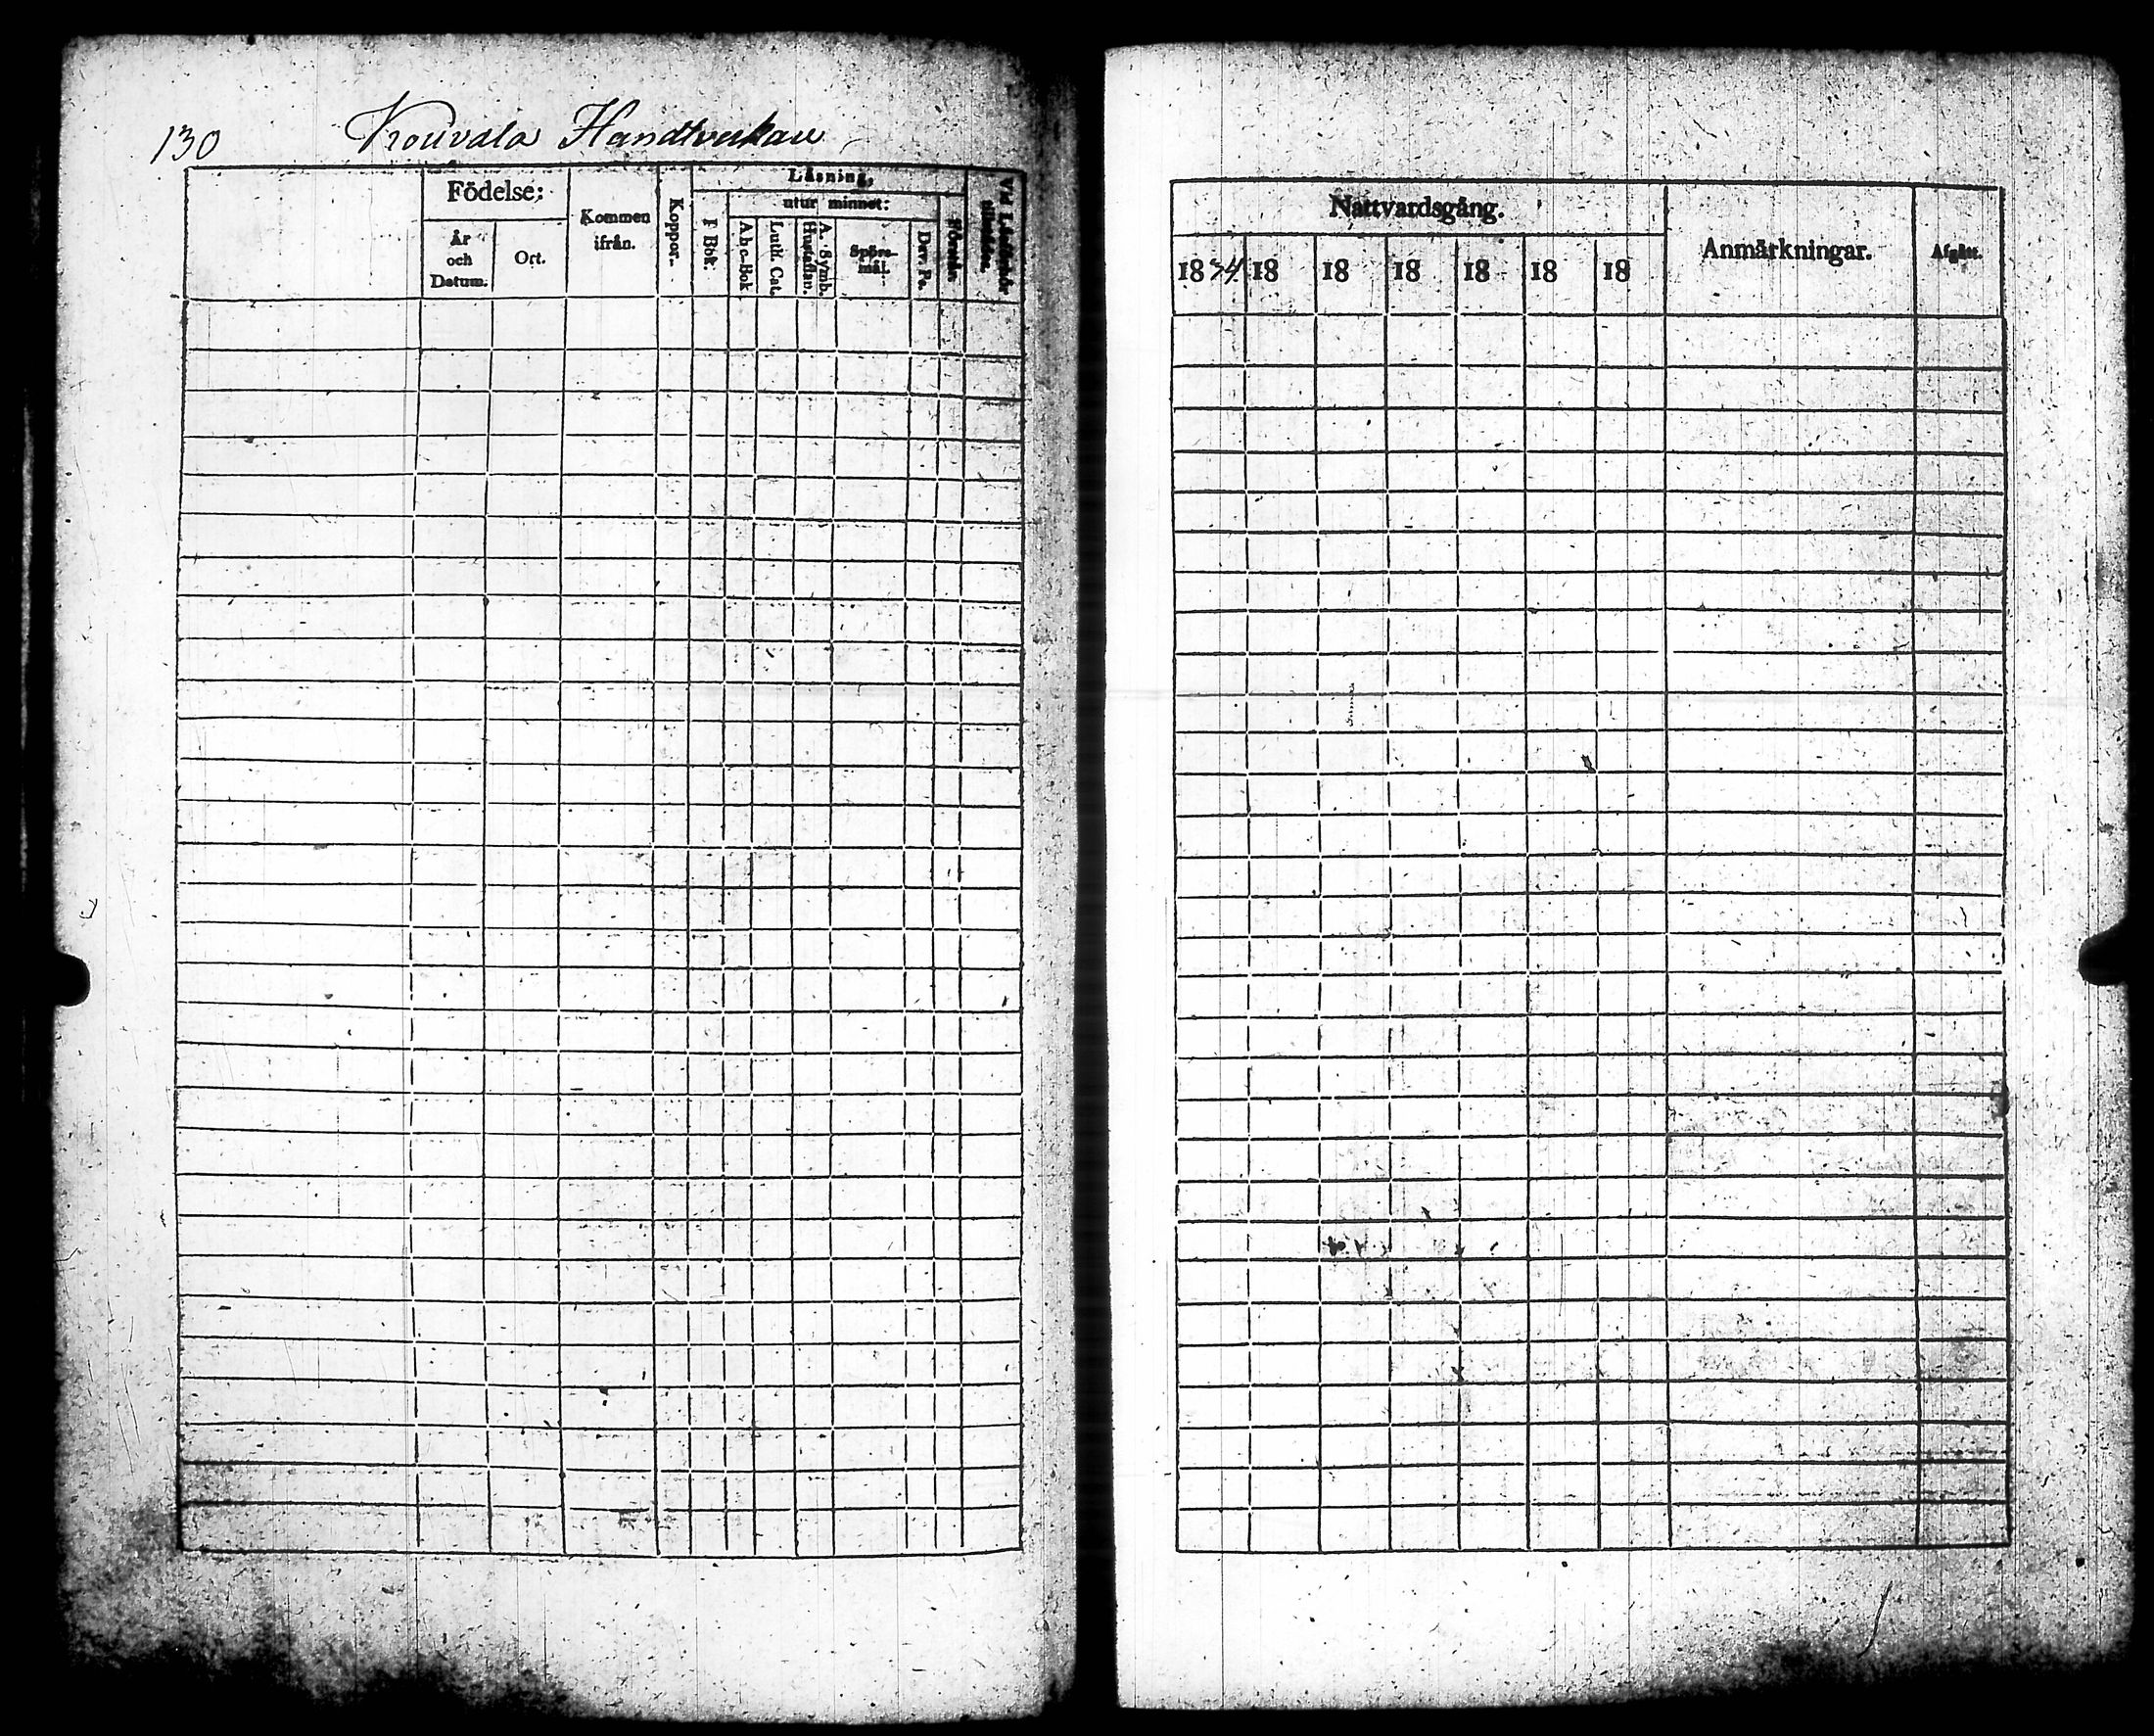 130 Kouvala Handtverkare
Födelse:
År
och
Datum.
Ort.
Kommen
ifrån.
Koppor.
Läsning,
I Bok.
utur minnet:
Abc-Bok
Luth. Cat.
A. Symb.
Hustaflan.
Spörs-
mål.
Dav. Ps.
Vid Läsförhör
Nattvardsgång.
1834 18 18 18 18 18 18
Anmärkningar.
Afgått.